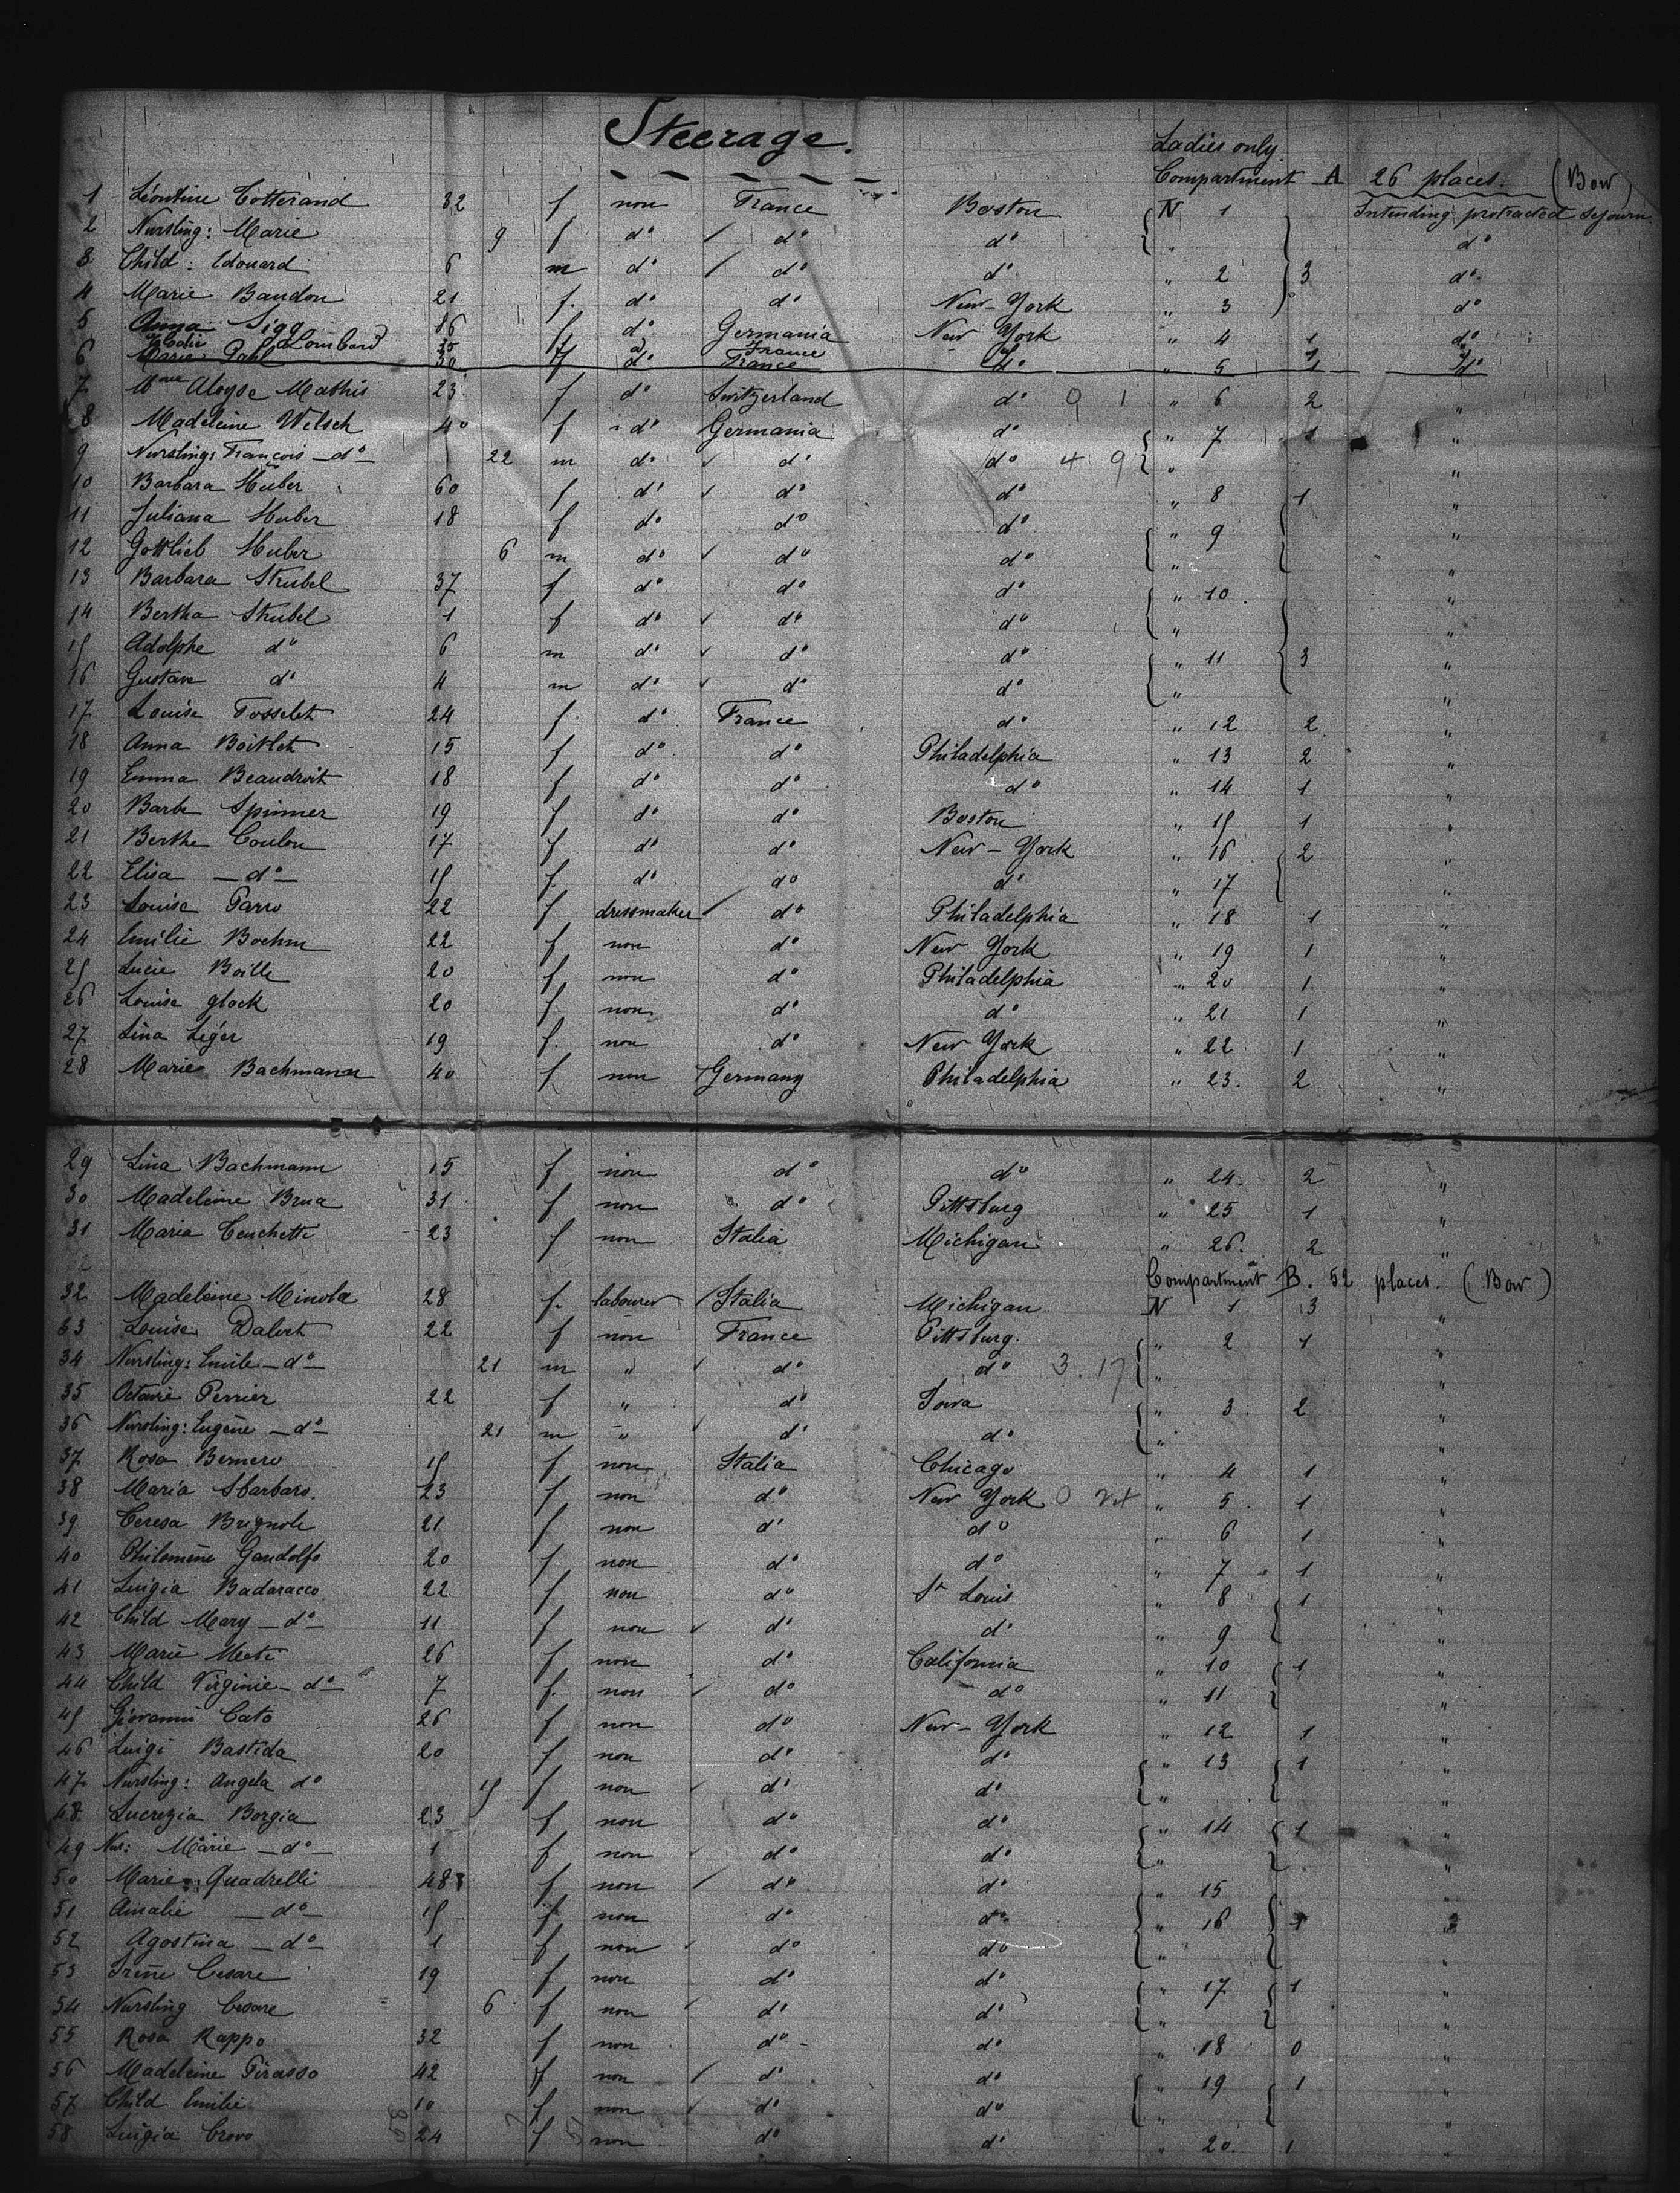 Steerage.
Ladies only.
Compartment A 26 places. (Bow)
1 Léontine Cotterand 32 f non France Boston N 1 Intending protracted sejourn
2 Nursling: Marie 9 f d° d° d° " d°
3 Child: Edouard 6 m d° d° d° " 2 3 d°
4 Marie Baudon 21 f. d° d° New-York " 3 d°
5 Anna Sigg 86 f d° Germania New York " 4 1 d°
Lombard 35 f d° France
6 Marie Pahl 30 f d° France d° " 5 1 d°
7 Mme Aloyse Mathis 23 f d° Switzerland d° 9 1 " 6 2 "
8 Madeleine Welsch 40 f d° Germania d° " 7 1 "
9 Nursling: François -d°- 22 m d° d° d° 4 9 " "
10 Barbara Huber 60 f d° d° d° " 8 1 "
11 Juliana Huber 18 f d° d° d° " 9 "
12 Gottlieb Huber 6 m d° d° d° " "
13 Barbara Strubel 37 f d° d° d° " 10 "
14 Bertha Strubel 1 f d° d° d° " "
15 Adolphe d° 6 m d° d° d° " 11 3 "
16 Gustave d° 4 m d° d° d° " "
17 Louise Fosselet 24 f. d° France d° " 12 2 "
18 Anna Boitlet 15 f d° d° Philadelphia " 13 2 "
19 Emma Beaudroit 18 f d° d° d° " 14 1 "
20 Barbe Spinner 19 f d° d° Boston " 15 1 "
21 Berthe Coulon 17 f d° d° New-York " 16 2 "
22 Elisa -d°- 15 f. d° d° d° " 17 "
23 Louise Parro 22 f dressmaker d° Philadelphia " 18 1 "
24 Emilie Boehm 22 f non d° New York " 19 1 "
25 Lucie Boille 20 f non d° Philadelphia " 20 1 "
26 Louise glock 20 f non d° d° " 21 1 "
27 Lina Léger 19 f. non d° New York " 22 1 "
28 Marie Bachmann 40 f non Germany Philadelphia " 23. 2 "
29 Lina Bachmann 15 f non d° d° " 24 2 "
30 Madeleine Brua 31 f non d° Pittsburg " 25 1 "
31 Maria Cenchetti 23 f non Italia Michigan " 26. 2 "
Compartment B. 52 places. (Bow)
32 Madeleine Minola 28 f. labourer Italia Michigan N 1 3 "
33 Louise Dalvet 22 f non France Pittsburg. " 2 1 "
34 Nursling: Emile -d°- 21 m " d° d° 3. 17 " "
35 Octavie Perrier 22 f " d° Iowa " 3 2 "
36 Nursling: Eugène -d°- 21 m " d° d° " "
37 Rosa Bernero 15 f non Italia Chicago " 4 1 "
38 Maria Sbarbaro. 23 f non d° New York 0 24 " 5 1 "
39 Ceresa Brignole 21 f non d° d° " 6 1 "
40 Philomène Gandolfo 20 f non d° d° " 7 1 "
41 Luigia Badaracco 22 f non d° St Louis " 8 1 "
42 Child Mary -d°- 11 f non d° d° " 9 "
43 Marie Meti 26 f non d° California " 10 1 "
44 Child Virginie -d°- 7 f. non d° d° " 11 "
45 Giovanni Cato 26 f non d° New-York " 12 1 "
46 Luigi Bastida 20 f non d° d° " 13 1 "
47 Nursling: Angela d° 15 f non d° d° " "
48 Lucrezia Borgia 23 f non d° d° " 14 1 "
49 Nur: Marie -d°- 1 f non d° d° " "
50 Marie Quadrelli 48 f non d° d° " 15 "
51 Amalie -d°- 15 f non d° d° " 16 1 "
52 Agostina -d°- 1 f non d° d° " "
53 Irène Cesare 19 f non d° d° " 17 1 "
54 Nursling Cesare 6 f non d° d° " "
55 Rosa Rappo 32 f non d° d° " 18 0 "
56 Madeleine Pirasso 42 f non d° d° " 19 1 "
57 Child Emilie 10 f non d° d° " "
58 Luigia Crovo 24 f non d° d° " 20. 1 "